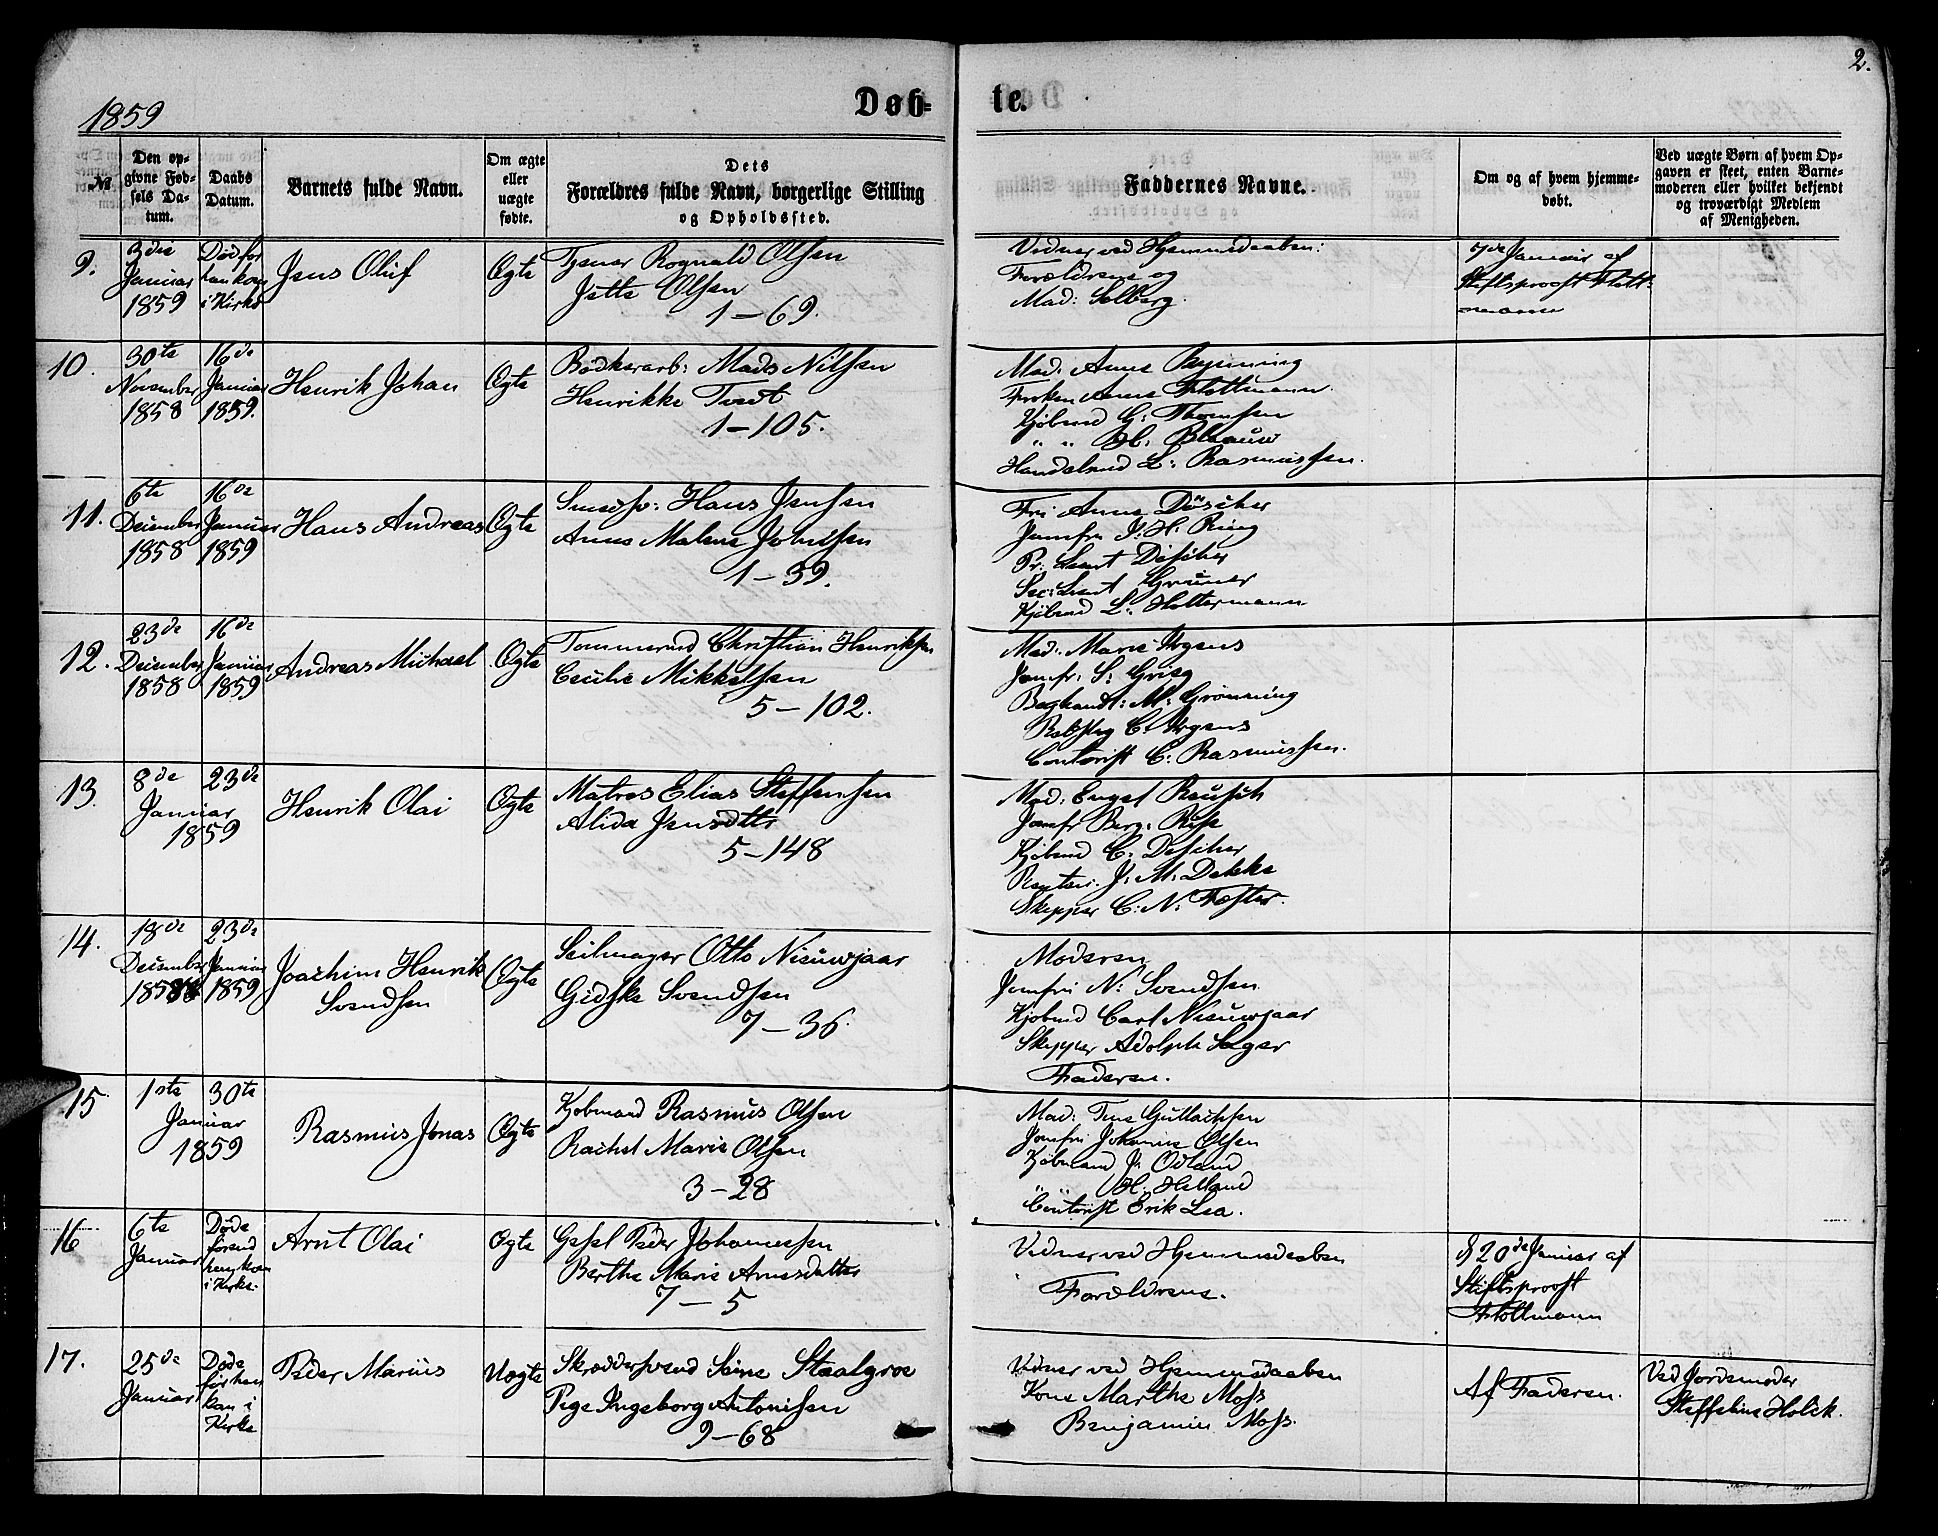 2.
1859
Døb-
te.
№
Den op-
givne Fød-
sels Da-
tum.
Daabs
Datum.
Barnets fulde Navn.
Om ægte
eller
uægte
fødte.
Dets
Forældres fulde Navn, borgerlige Stilling
og Opholdssted.
Faddernes Navne.
Om og af hvem hjemme-
døbt.
Ved uægte Børn af hvem Op-
gaven er skeet, enten Barne-
moderen eller hvilket bekjendt
og troværdigt Medlem
af Menigheden.
9.
3die
Januar
1859
Død for
han kom
i Kirke
Jens Oluf
Ægte
Tjener Rognald Olsen
Jette Olsen
1-69.
Vidner ved Hjemmedaaben:
Forældrene og
Mad: Solberg.
7de Januar af
Stiftsprovst Flott-
mann
10.
30te
November
1858
16de
Januar
1859.
Henrik Johan
Ægte
Bødkerarb: Mads Nilsen
Henrikke Tvedt
1-105.
Mad: Anne
Frøken Anne Flottmann.
Kjøbmd G: Thomsen
" " H: Blaauw
Handelsmd L: Rasmussen.
11.
6te
December
1858
16de
Januar
1859
Hans Andreas
Ægte
Smedsv: Hans Jensen
Anne Malene Johnsen
1-39.
Fru Anne Düscher
Jomfru J. H: Ring
Pr: Lieut Discher
Sec: Lieut Grüner
Kjøbmd L: Holtermann
12.
23de
December
1858
16de
Januar
1859
Andreas Michael
Ægte
Tømmermd Christian Henriksen
Cecilie Mikkelsen
5-102.
Mad: Marie Irgens
Jomfr: S: Grieg
Boghandl: M: Grønning
C. Irgens
Contorist C: Rasmussen.
13.
8de
23de
Januar
1859
Henrik Olai
Ægte
Matros Elias Steffensen
Alida Jensdtr
5-148
Mad: Engel Reusch
Jomfr Berg: Riise
Kjøbmd C: Discher
J: M: Dekke
Skipper C: N: Fester.
14.
18de
December
1858
23de
Januar
1859
Joachim Henrik
Svendsen
Ægte
Seilmager Otto Nieuwjaar
Gidske Svendsen
7-36.
Moderen
Jomfru N: Svendsen.
Kjøbmd Carl Nieuwjaar
Skipper Adolph Seger
Faderen.
15
1ste
30te
Januar
1859
Rasmus Jonas
Ægte
Kjøbmand Rasmus Olsen
Rachel Marie Olsen
3-28
Mad: Tine Gullachsen
Jomfru Johanne Olsen
Kjøbmand J: Odland
" H: Helland
Contorist Erik Lea.
16
6te
Januar
Døde
førend
kom
i Kirke.
Arnt Olai
Ægte
Gesel Peder Johannesen
Berthe Marie Arnesdatter
7-5
Vidner ved Hjemmedaaben
Forældrene.
d 20de Januar af
Stiftsprovst
Flottmann
17.
25de
Januar
Døde
før han
kom i
Kirke
Peder Marius
Uægte
Skrædersvend Seine Staalgroe
Pige Ingeborg Antonisen
9-68
Vidner ved Hjemmedaaben
Kone Marthe Moss
Benjamin Moss.
Af Faderen.
Ved Jordemoder
Steffeline Holck.